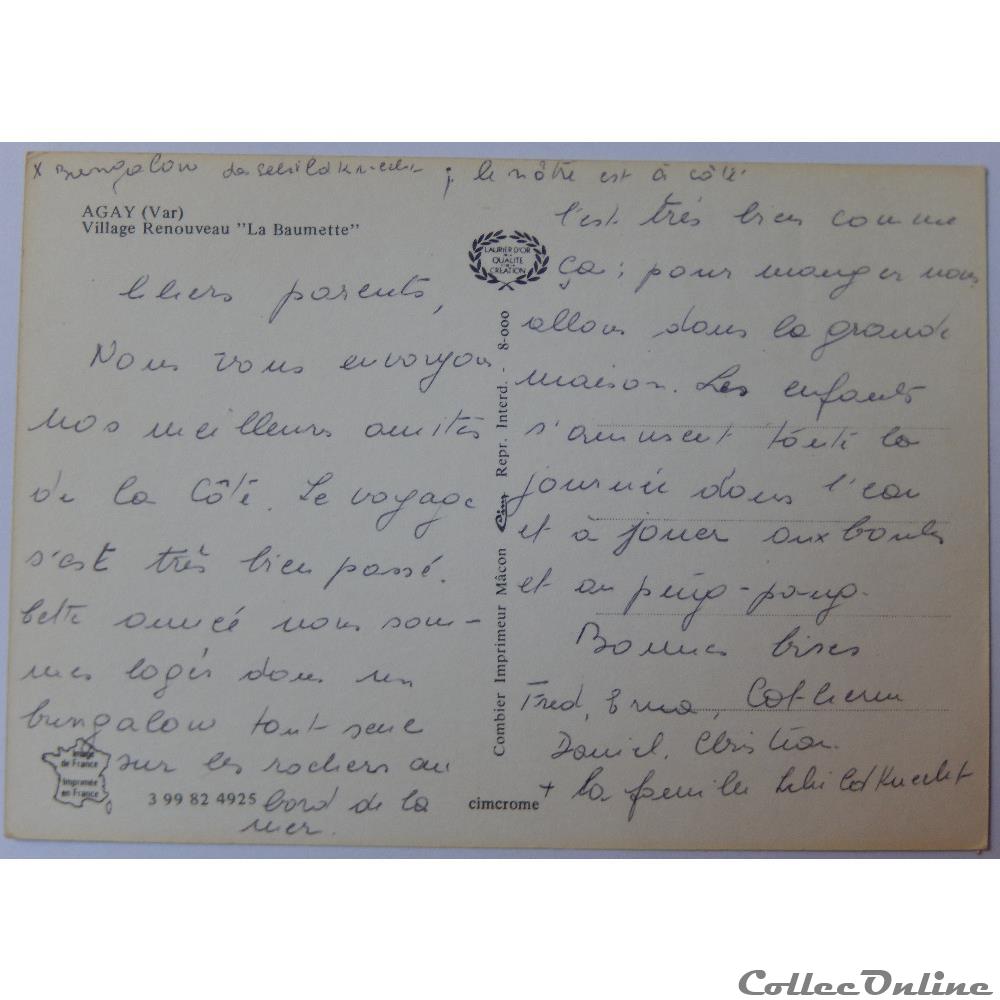 x Bungalow des Schildknecht ; le nôtre est à côté
AGAY (Var)
Village Renouveau "La Baumette"
Chers parents,
Nous vous envoyons
nos meilleurs amitiés
de la Côte. Le voyage
s'est très bien passé.
Cette année nous som-
mes logés dans un
bungalow tout seul
sur les rochers au
bord de la
mer.
Image
de France
Imprimée
en France
3 99 82 4925
LAURIER D'OR
DE LA
QUALITE
CREATION
Combier Imprimeur Mâcon Cim Repr. Interd. - 8-000
cimcrome
C'est très bien comme
ça ; pour manger nous
allons dans la grande
maison. Les enfants
s'amusent toute la
journée dans l'eau
et à jouer aux boules
et au ping-pong.
Bonnes bises
Fred, Erna, Catherine
Daniel, Christian.
+ la famille Schildknecht
CollecOnline